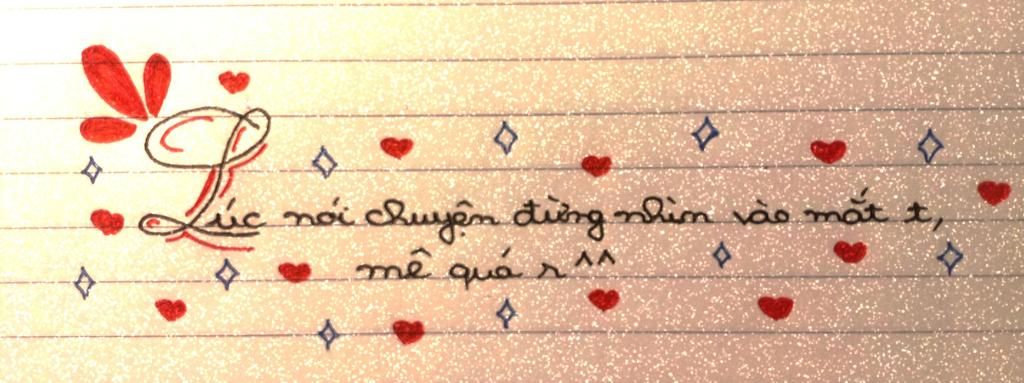 Lúc nói chuyện đừng nhìn vào mắt t,
mê quá r^^